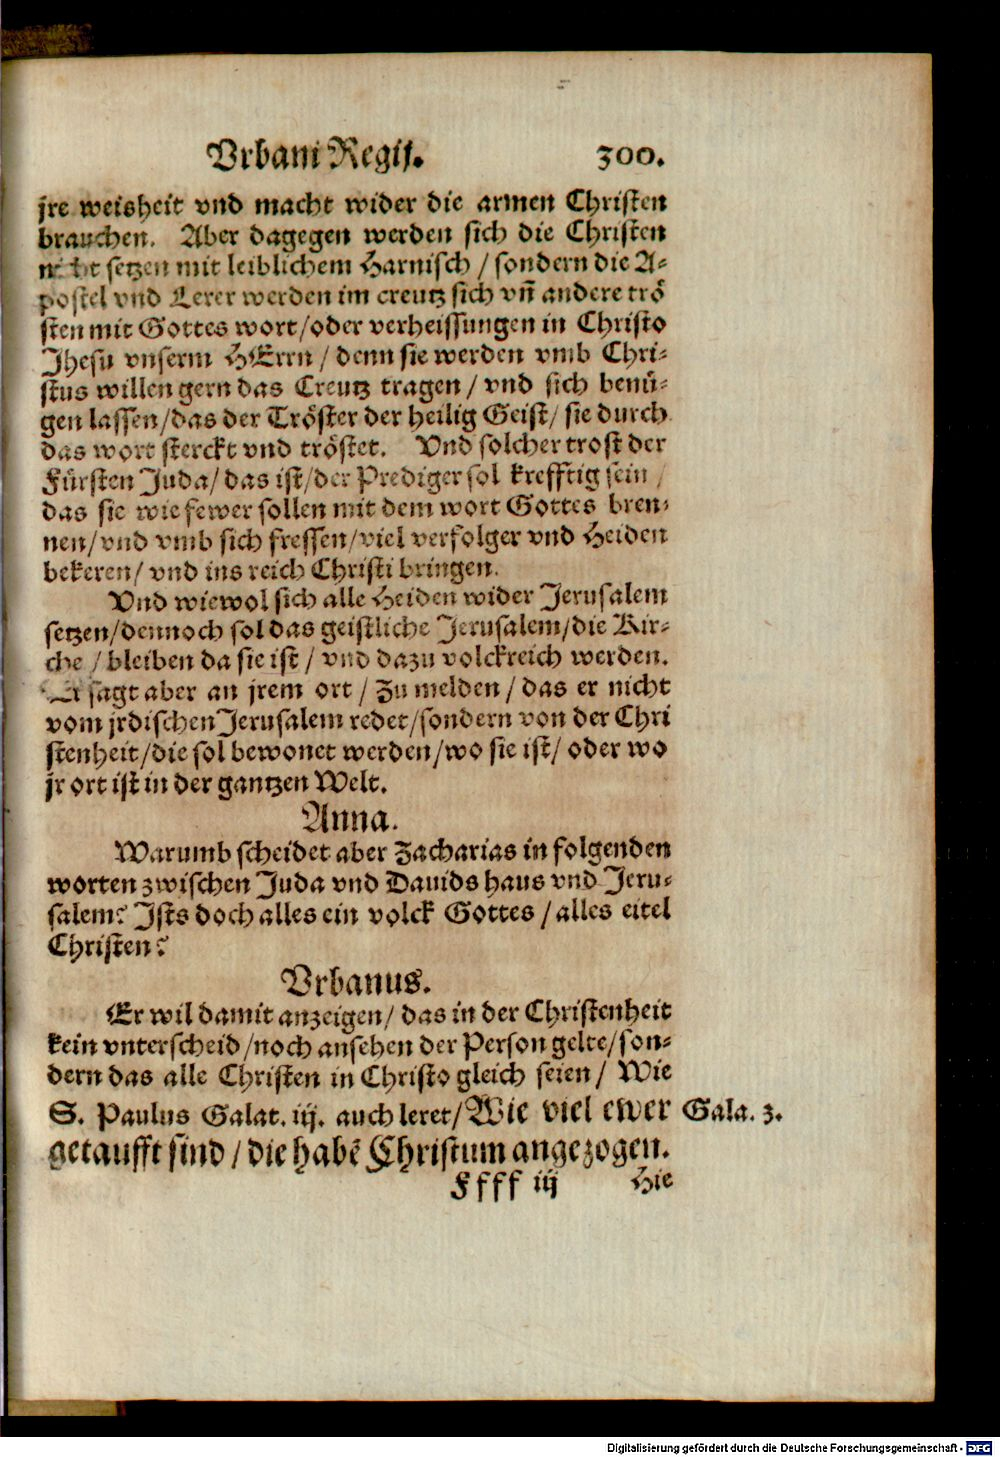 Vrbani Regij. 300.
jre weisheit vnd macht wider die armen Christen
brauchen. Aber dagegen werden sich die Christen
nicht setzen mit leiblichem Harnisch / sondern die A-
postel vnd Lerer werden im creutz sich vñ andere trö
sten mit Gottes wort/oder verheissungen in Christo
Jhesu vnserm HErrn / denn sie werden vmb Chri-
stus willen gern das Creutz tragen / vnd sich benü-
gen lassen/das der Tröster der heilig Geist/ sie durch
das wort sterckt vnd tröstet. Vnd solcher trost der
Fürsten Juda/ das ist/der Prediger sol krefftig sein /
das sie wie fewer sollen mit dem wort Gottes bren-
nen/vnd vmb sich fressen/viel verfolger vnd Heiden
bekeren/ vnd ins reich Christi bringen.
Vnd wiewol sich alle Heiden wider Jerusalem
setzen/dennoch sol das geistliche Jerusalem/die Kir-
che / bleiben da sie ist / vnd dazu volckreich werden.
Er sagt aber an jrem ort / Zu melden / das er nicht
vom jrdischen Jerusalem redet/sondern von der Chri
stenheit/die sol bewonet werden/wo sie ist/ oder wo
jr ort ist in der gantzen Welt.
Anna.
Warumb scheidet aber Zacharias in folgenden
worten zwischen Juda vnd Dauids haus vnd Jeru-
salem? Ists doch alles ein volck Gottes / alles eitel
Christen?
Vrbanus.
Er wil damit anzeigen/ das in der Christenheit
kein vnterscheid/noch ansehen der Person gelte/son-
dern das alle Christen in Christo gleich seien / Wie
S. Paulus Galat. iij. auch leret/Wie viel ewer Gala. 3.
getaufft sind / die habē Christum angezogen.
Ffff iij Hie
Digitalisierung gefördert durch die Deutsche Forschungsgemeinschaft - DFG